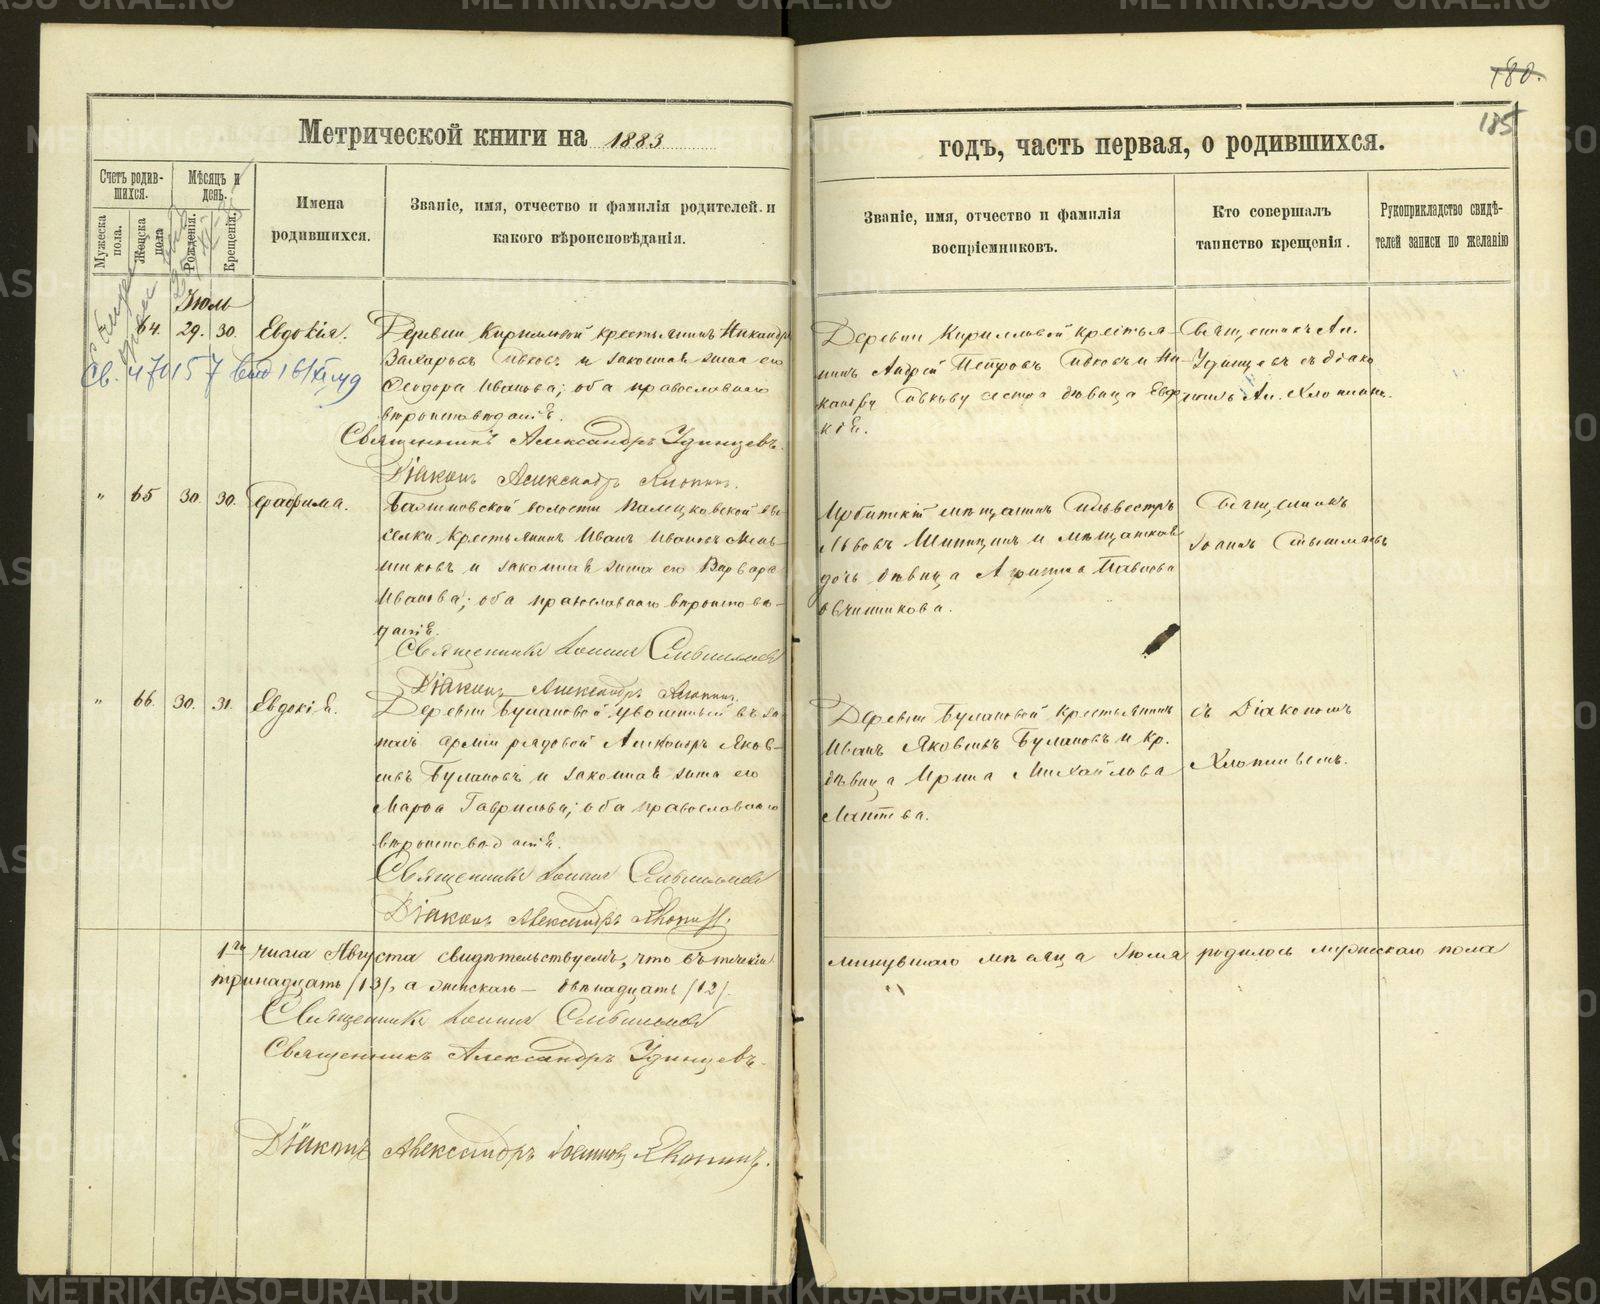 180.
185
Метрической книги на 1883
годъ, часть первая, о родившихся.
Счетъ родив-
шихся.
Мужеска пола.
Женска пола
Мѣсяцъ и день.
Рожденія.
Крещенія.
Имена
родившихся.
Званіе, имя, отчество и фамилія родителей и
какого вѣроисповѣданія.
Званіе, имя, отчество и фамилія
воспріемниковъ.
Кто совершалъ
таинство крещенія.
Рукоприкладство свидѣ-
телей записи по желанію
Іюль
64. 29. 30. Евдокія.
Деревни Кирилловой крестьянинъ Никандръ
Захаровъ и законная жена его
Ѳеодора Иванова; оба православнаго
вѣроисповѣданія.
Священникъ Александръ Удинцевъ.
Діаконъ Александръ
Деревни Кирилловой крестья-
нинъ Андрей Петровъ и Ни-
кандру сестра дѣвица Евдо-
кія.
Священникъ Ал.
Удинцевъ съ діако
номъ Ал.
Св. 47015
" 65 30. 30. Серафима.
волости
крестьянинъ Иванъ Ивановъ Мень-
шиковъ и законная жена его Варвара
Иванова; оба православнаго вѣроисповѣ-
данія.
Священникъ Іоаннъ
Діаконъ Александръ
Ирбитскій мѣщанинъ Сильвестръ
Львовъ Шипицинъ и мѣщанская
дочь дѣвица Павлова
Овчинникова.
Священникъ
Іоаннъ
" 66. 30. 31. Евдокія.
Деревни Булановой уволенный въ за-
пасъ арміи рядовой Александръ Яков-
левъ Булановъ и законная жена его
Марѳа Гаврилова; оба православнаго
вѣроисповѣданія.
Священникъ Іоаннъ
Діаконъ Александръ
Деревни Булановой крестьянинъ
Иванъ Яковлевъ Булановъ и кр.
дѣвица Ирина Михайлова
Лаптева.
съ Діакономъ
1го числа Августа свидѣтельствуемъ, что въ теченіи минувшаго мѣсяца Іюля родилось мужескаго пола
тринадцать /13/, а женскаго — двѣнадцать /12/.
Священникъ Іоаннъ
Священникъ Александръ Удинцевъ.
Діаконъ Александръ Іоанновъ
METRIKI.GASO-URAL.RU